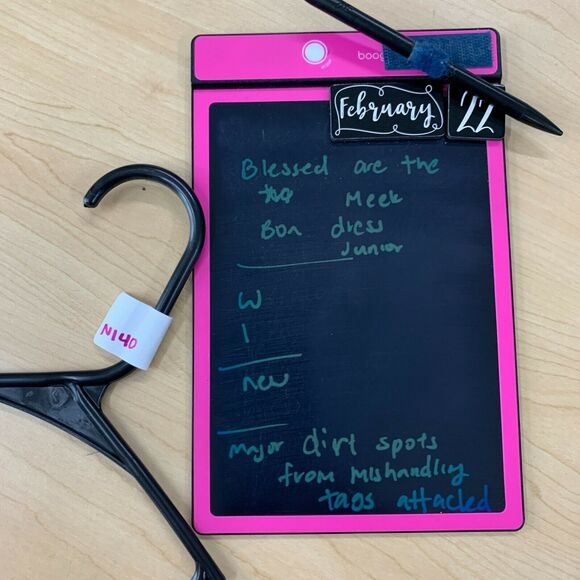 boog
February 22
Blessed are the
Meek
Bon dress
Junior
W
1
new
major dirt spots
from mishandling
tags attacked
N140